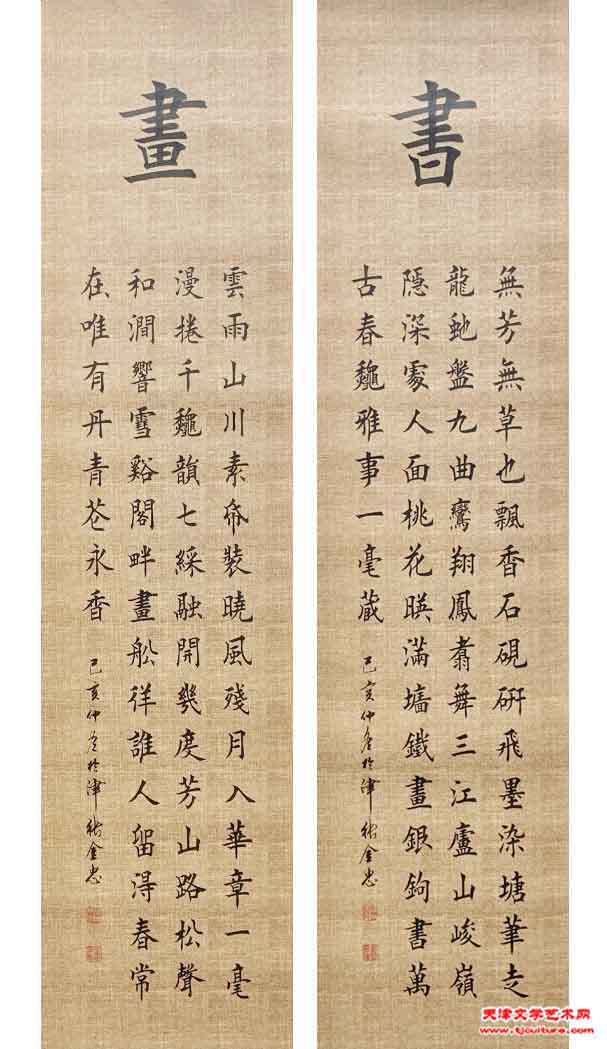 書
無芳無草也飄香石硯研飛墨染塘筆走
龍虵盤九曲鸞翔鳳翥舞三江廬山峻嶺
隱深處人面桃花暎滿墻鐵畫銀鉤書萬
古春龝雅事一毫蔵
己亥仲冬於津金忠
畫
雲雨山川素帋裝曉風殘月入華章一毫
漫捲千龝韻七綵融開幾度芳山路松聲
和澗響雪谿閣畔畫船徉誰人留得春常
在唯有丹青苍永香
己亥仲冬於津金忠
天津文学艺术网
www.tjculture.com